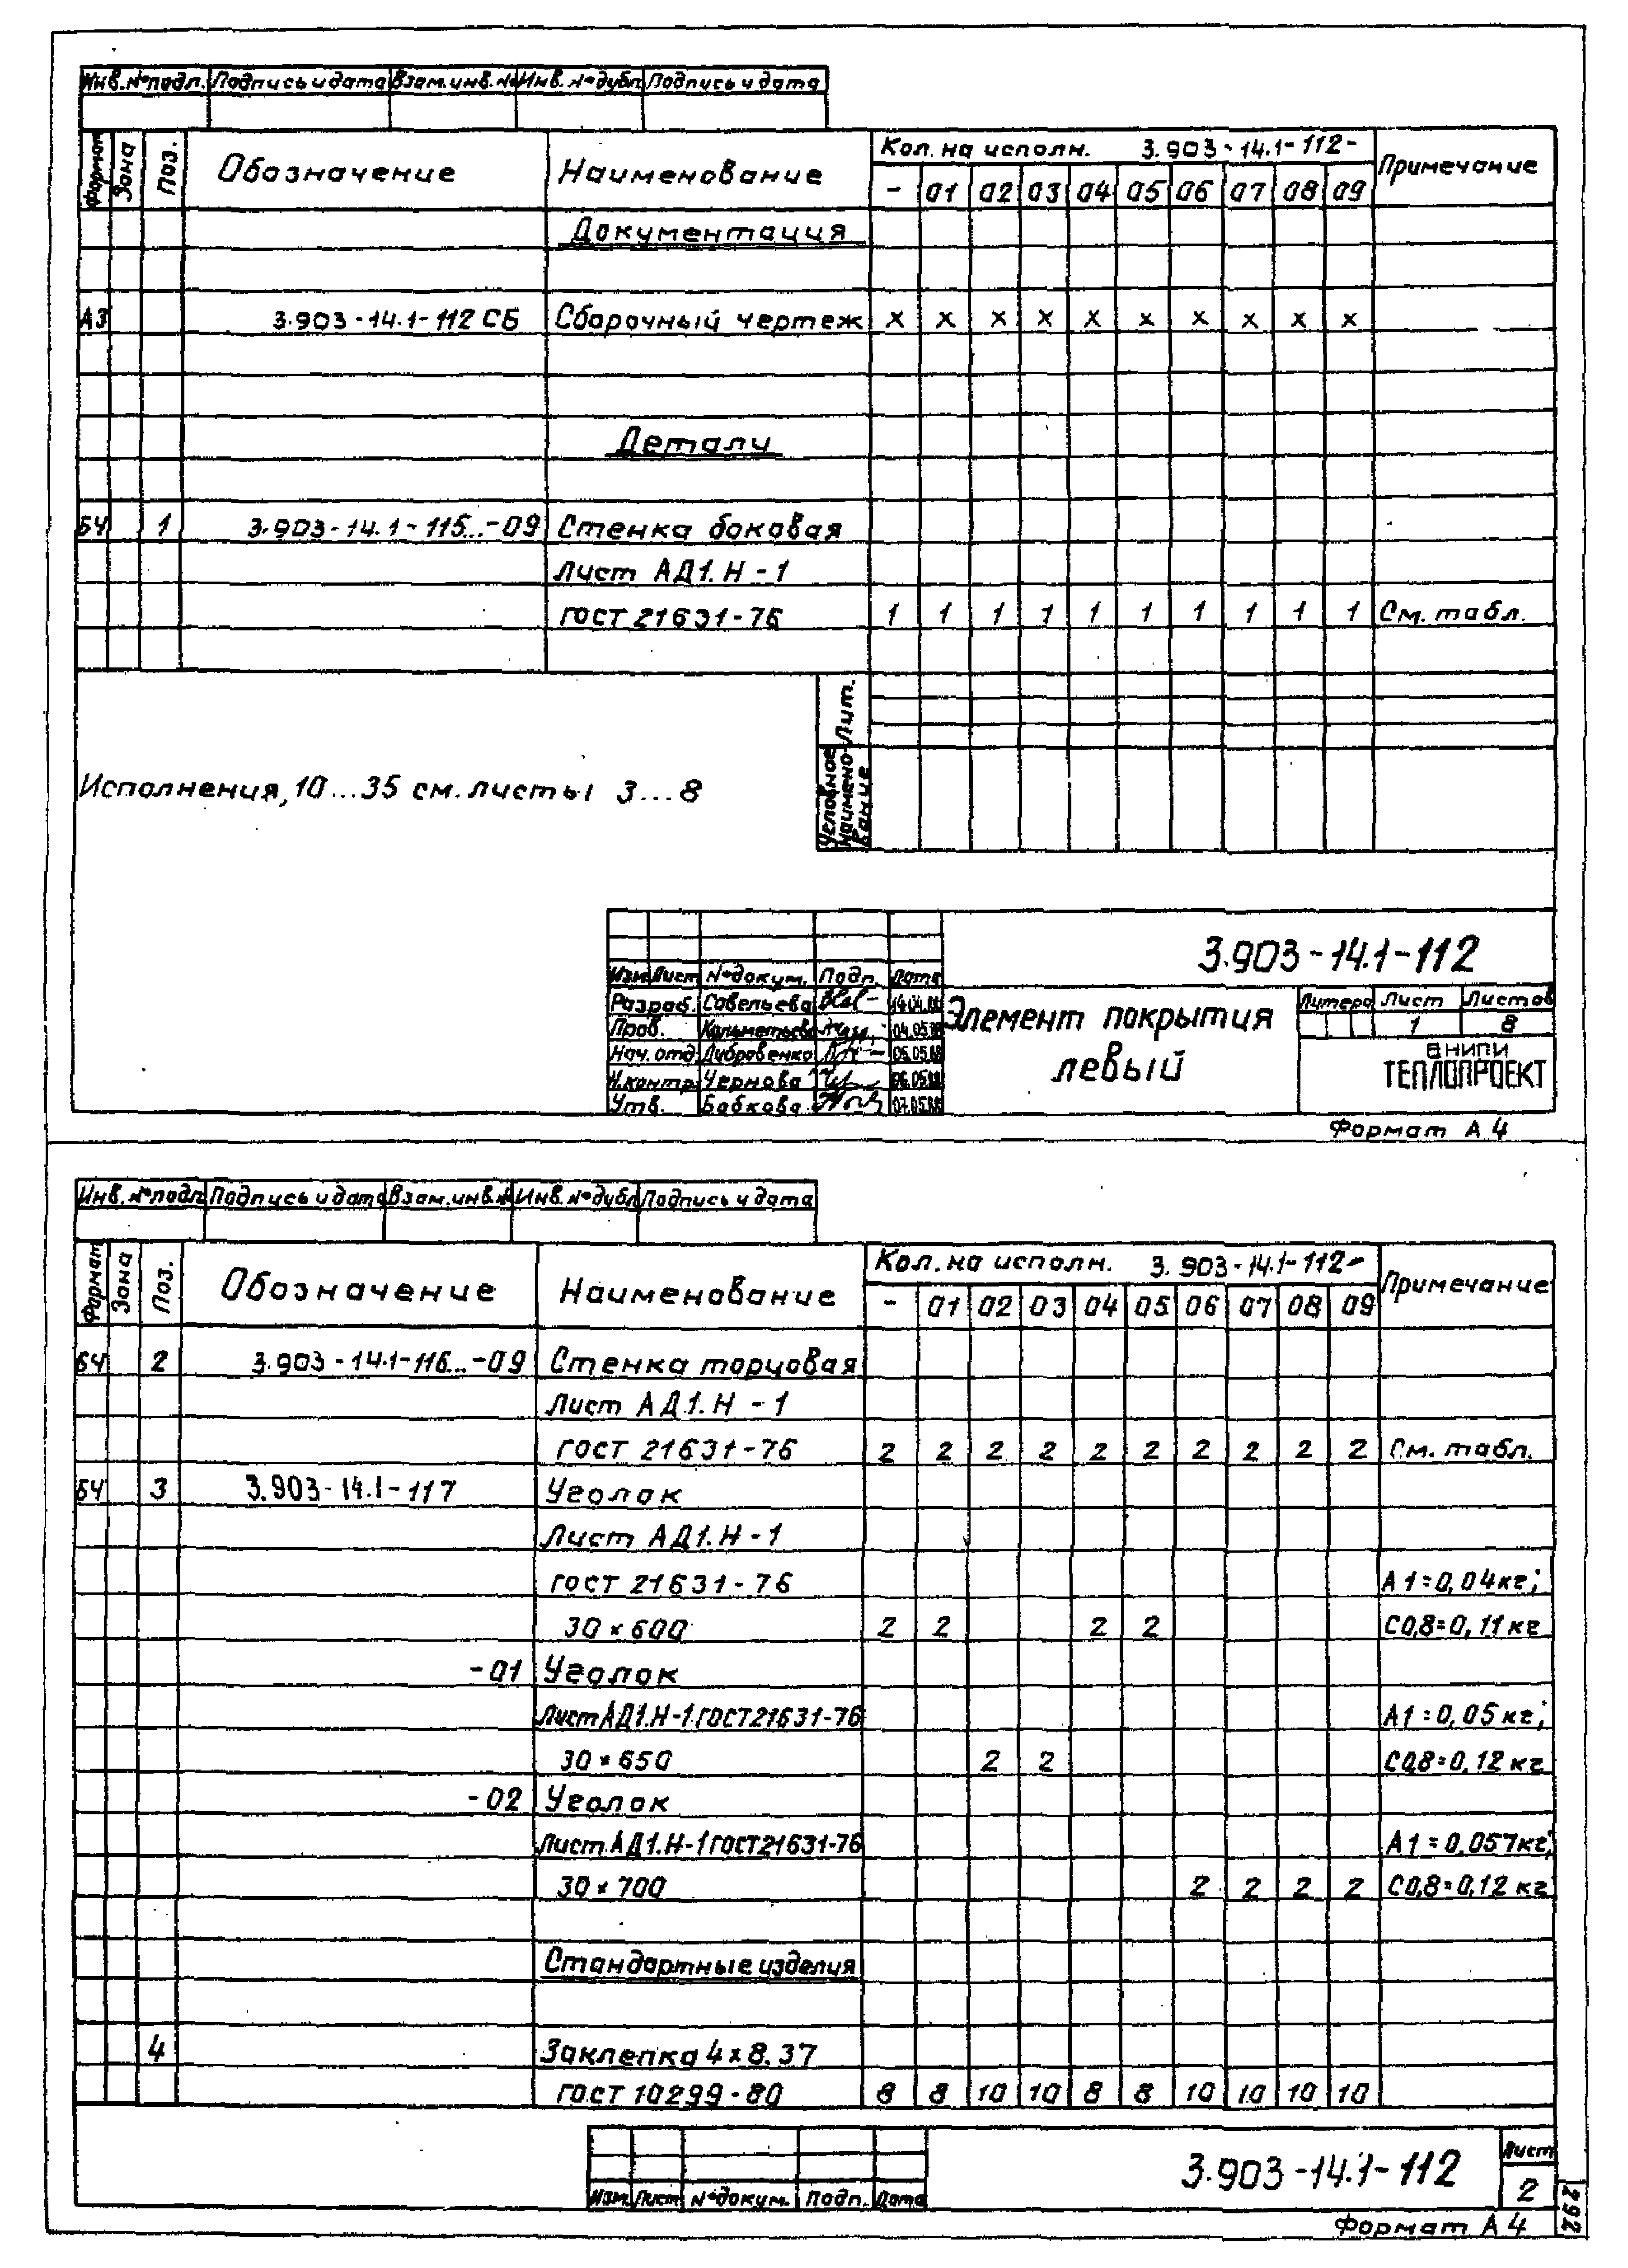 Инв.№подл. Подпись и дата Взам.инв.№ Инв.№дубл. Подпись и дата
Формат Зона Поз. Обозначение Наименование Кол. на исполн. 3.903-14.1-112- Примечание
- 01 02 03 04 05 06 07 08 09
Документация
А3 3.903-14.1-112 СБ Сборочный чертеж х х х х х х х х х х
Детали
БЧ 1 3.903-14.1-115...-09 Стенка боковая
Лист АД1.Н-1
ГОСТ 21631-76 1 1 1 1 1 1 1 1 1 1 См. табл.
Лит.
Исполнения, 10...35 см. листы 3...8
Условное наименование
3.903-14.1-112
Изм. Лист №докум. Подп. Дата
Разраб. Савельева
Элемент покрытия левый
Литера Лист Листов
1 8
Пров. 04.05.88
Нач. отд. Дубровенко 05.05.88
Н.контр. Чернова 06.05.88
Утв. Бабкова 07.05.88
ВНИПИ
ТЕПЛОПРОЕКТ
Формат А4
Инв.№подл. Подпись и дата Взам.инв.№ Инв.№дубл. Подпись и дата
Формат Зона Поз. Обозначение Наименование Кол. на исполн. 3.903-14.1-112- Примечание
- 01 02 03 04 05 06 07 08 09
БЧ 2 3.903-14.1-116...-09 Стенка торцовая
Лист АД1.Н-1
ГОСТ 21631-76 2 2 2 2 2 2 2 2 2 2 См. табл.
БЧ 3 3.903-14.1-117 Уголок
Лист АД1.Н-1
ГОСТ 21631-76 А1=0,04кг;
30×600 2 2 2 2 С0,8=0,11 кг
-01 Уголок
Лист АД1.Н-1 ГОСТ21631-76 А1=0,05 кг;
30×650 2 2 С0,8=0,12 кг
-02 Уголок
Лист.АД1.Н-1 ГОСТ21631-76 А1=0,057кг;
30×700 2 2 2 2 С0,8=0,12 кг
Стандартные изделия
4 Заклепка 4×8.37
ГОСТ 10299-80 8 8 10 10 8 8 10 10 10 10
3.903-14.1-112
Лист
2
Изм. Лист №докум. Подп. Дата
Формат А4
292